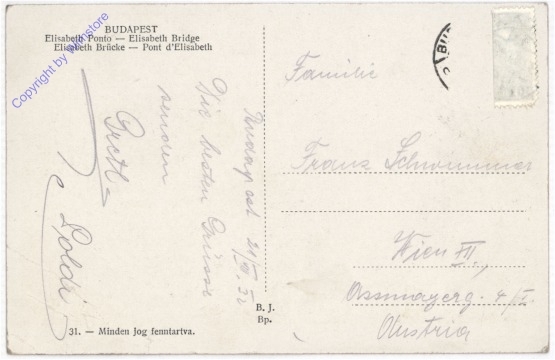 BUDAPEST
Elisabeth Ponto — Elisabeth Bridge
Elisabeth Brücke — Pont d'Elisabeth
Copyright by wienstore
Budapest 21/
Die besten Grüsse
senden
Gretl
Poldi
31. — Minden Jog fenntartva.
B. J.
Bp.
BU
Familie
Franz Schwimmer
Wien XII,
Assmayerg. 4/I.
Austria